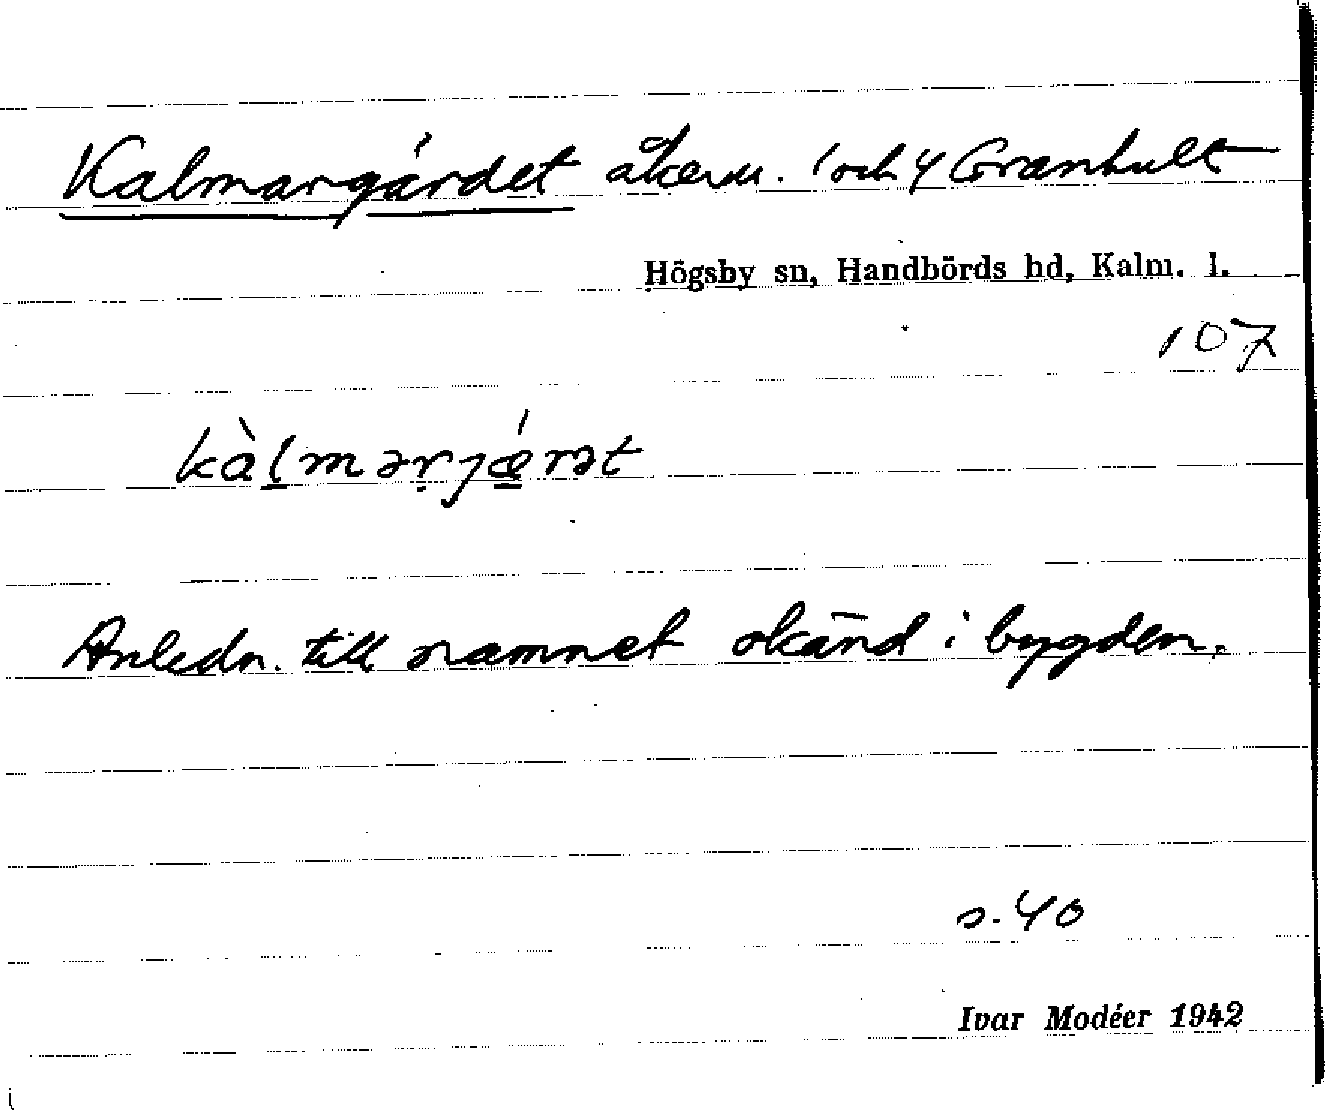 Kalmargärdet åkerm. 1 och 4 Granhult
Högsby sn, Handbörds hd, Kalm. l.
107
kàlmərjǽrət
Anledn. till namnet okänd i bygden.
s. 40
Ivar Modéer 1942